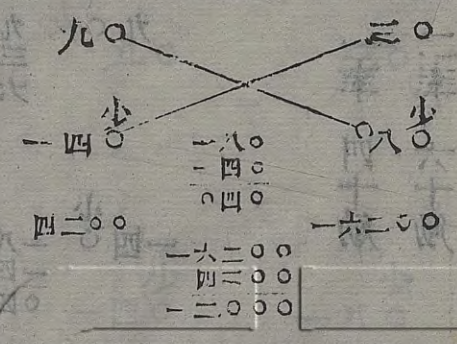 九〇 三〇
小 小
一四〇 〇八〇
一八〇
一四〇
〇四〇
四二〇〇 一六二〇〇
一六二〇〇
四二〇〇
一二〇〇〇